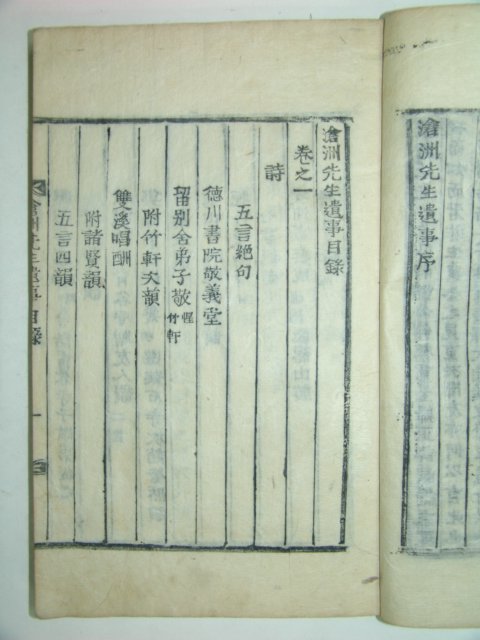 滄洲先生遺事序
滄洲先生遺事目錄
卷之一
詩
五言絶句
德川書院敬義堂
留別舍弟子敬惺竹軒
附竹軒次韻
雙溪唱酬
附諸賢韻
五言四韻
滄洲先生遺事目錄
一